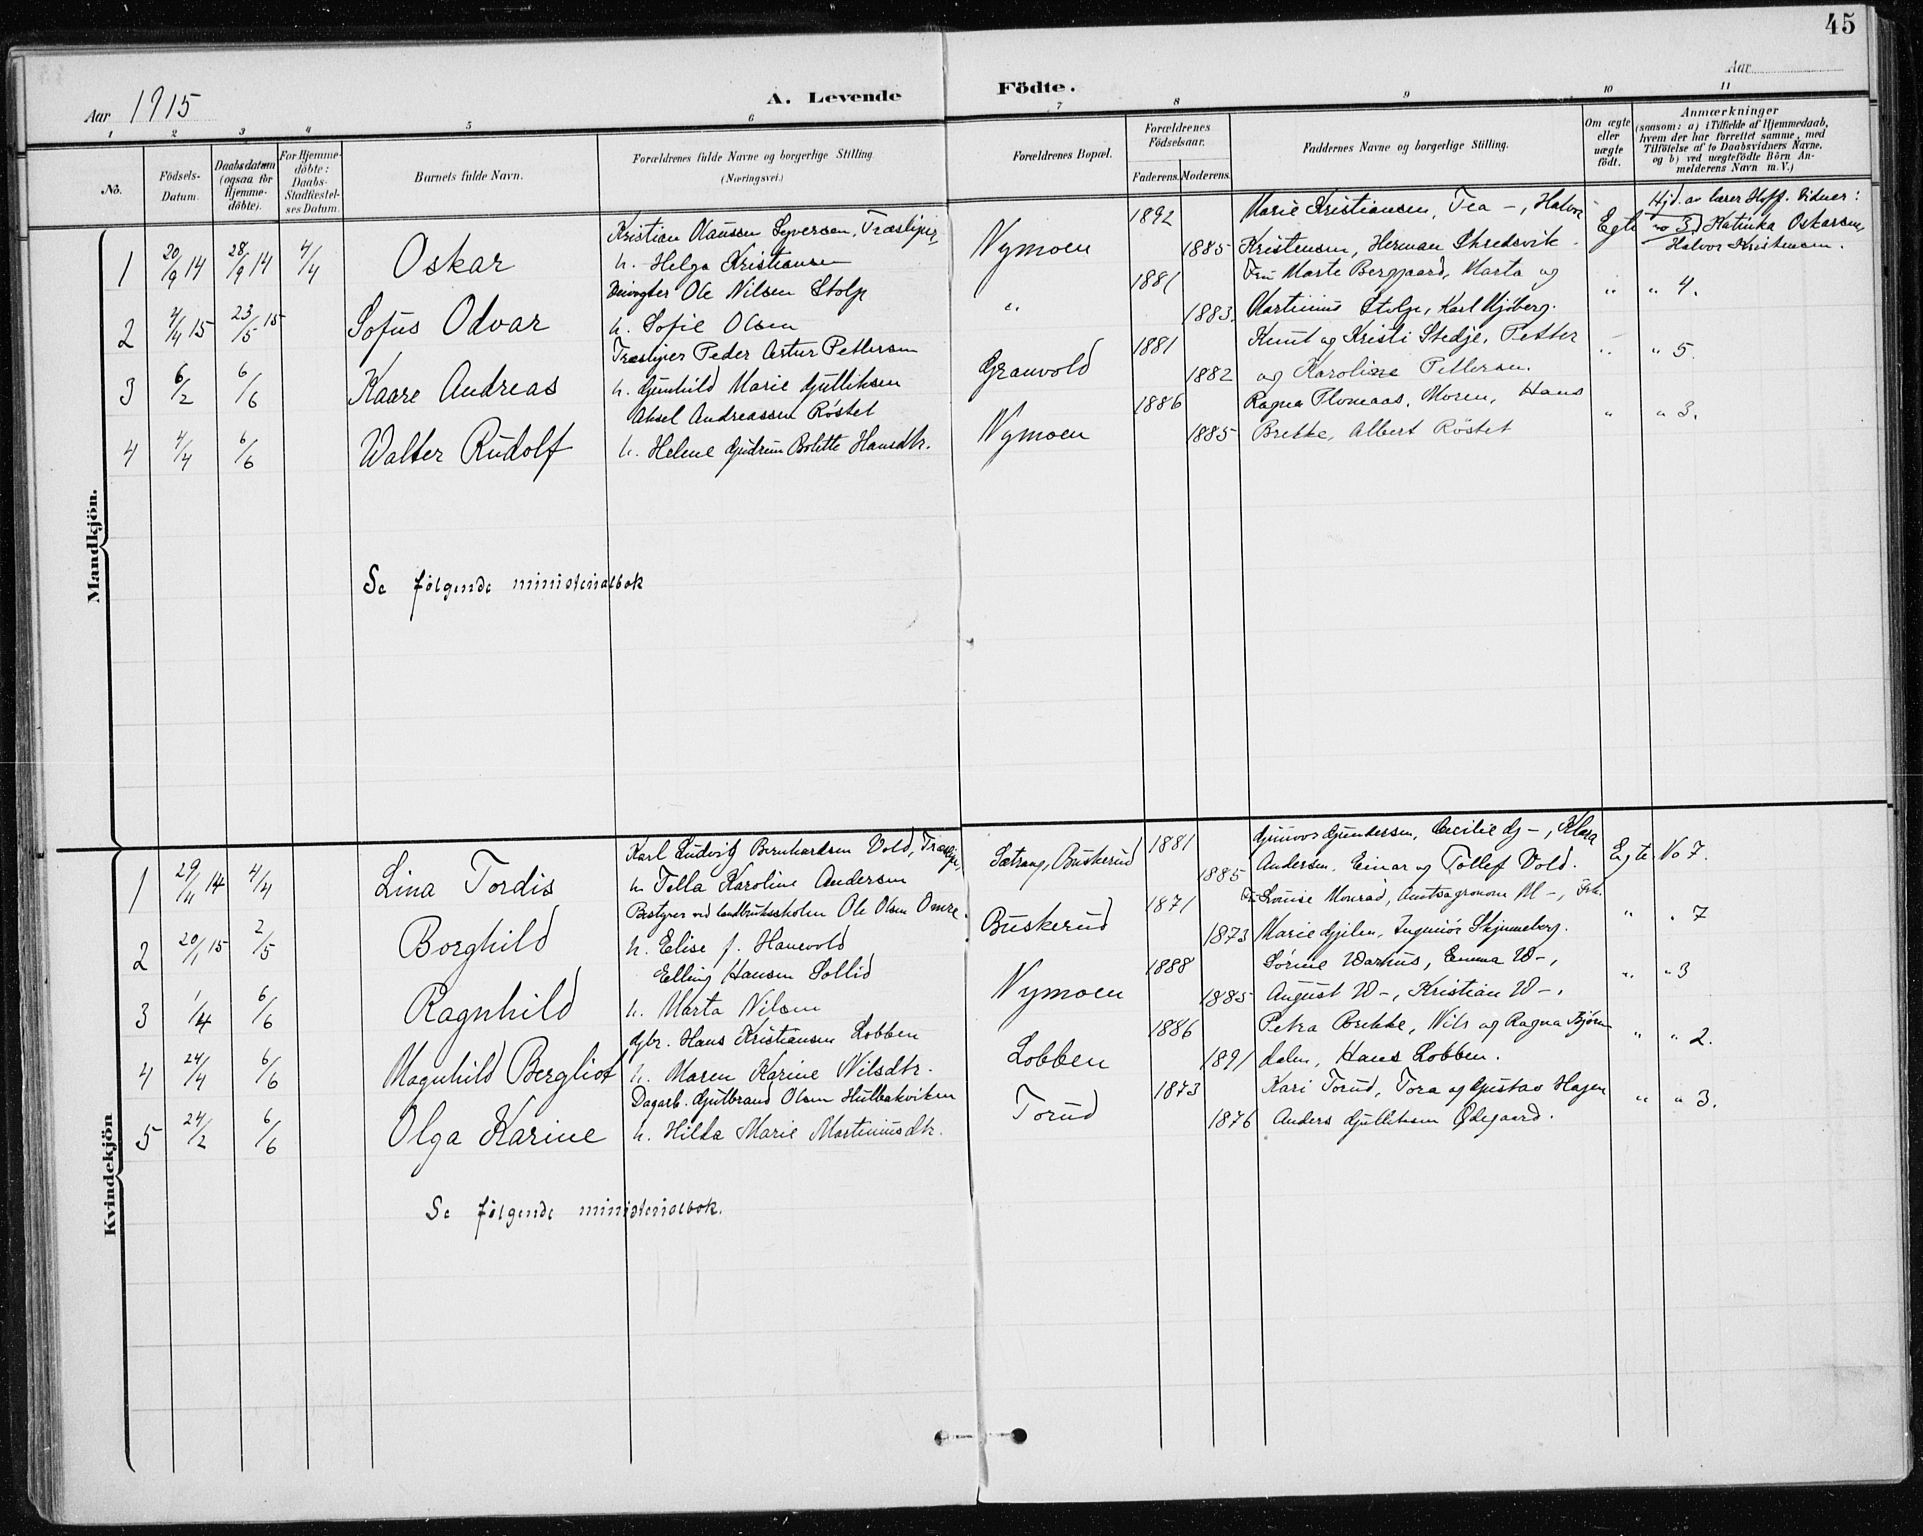 45
Aar 1915
A. Levende Födte.
Aar
1 2 3 4 5 6 7 8 9 10 11
No.
Födsels-Datum.
Daabsdatum (ogsaa for Hjemme-döbte).
For Hjemme-döbte: Daabs-Stadfæstel-ses Datum.
Barnets fulde Navn.
Forældrenes fulde Navne og borgerlige Stilling
(Næringsvei.)
Forældrenes Bopæl.
Forældrenes Födselsaar.
Faderens. Moderens.
Faddernes Navne og borgerlige Stilling.
Om ægte eller uægte födt.
Anmærkninger
(saasom: a) i Tilfælde af Hjemmedaab, hvem der har forrettet samme, med Tilföielse af to Daabsvidners Navne, og b) ved uægtefödte Börn An-melderens Navn m.V.)
Mandkjön.
1 20/9 14 28/9 14 4/4 Oskar
Kristian Olaussen Syversen, Træsliper,
h. Helga Kristiansen
Nymoen 1892 1885
Marie Kristiansen, Tea -, Halvor
Kristensen, Herman Skredsvik.
Egte
Hjd. av lærer Hoff. Vidner:
No 3) Katinka Oskarsen,
Halvor Kristensen.
2 4/4 15 23/5 15 Sofus Odvar
Ole Nilsen Stolp
h. Sofie Olsen
" 1881 1883.
Fru Marte Berggaard, Marta og
Martinius Stolp, Karl Mjøberg.
" " 4.
3 6/2 6/6 Kaare Andreas
Træsliper Peder Artur Pettersen
h. Gunhild Marie Gulliksen
Granvold 1881 1882
Knut og Kristi Stedje, Petter
og Karoline Pettersen.
" " 5.
4 4/4 6/6 Walter Rudolf
Aksel Andreassen Røstet
h. Helene Gudrun Bolette Hansdtr.
Nymoen 1886 1885
Ragna Plomaas, Moren, Hans
Brekke, Albert Røstet
" " 3.
Se følgende ministerialbok
Kvindekjön
1 29/11 14 4/4 Lina Tordis
Karl Ludvig Bernhardsen Vold, Træsliper,
h. Tella Karoline Andersen
Sætrang, Buskerud 1881 1885
Gunvor Gundersen, Cecilie G-, Klara
Andersen, Einar og Tollef Vold.
Egte No 7.
2 20/1 15 2/5 Borghild
Bestyrer ved landbruksskolen Ole Olsen Omre.
h. Elise f. Hanevold
Buskerud 1871 1873
Fru Louise Monrad, Amtsagronom M -, Frk.
Marie Gjilen, Ingeniør Skjinneberg.
" " 7
3 1/4 6/6 Ragnhild
Elling Hansen Sollid
h. Marta Nilsen
Nymoen 1888 1885
Sørine Warhus, Emma W-,
August W-, Kristian W-.
" " 3
4 24/4 6/6 Magnhild Bergliot
Gbr. Hans Kristiansen Lobben
h. Maren Karine Nilsdtr.
Lobben 1886 1891
Petra Brekke, Nils og Ragna Bjørn
dalen, Hans Lobben.
" " 2.
5 24/2 6/6 Olga Karine
Dagarb. Gulbrand Olsen Hulbakviken
h. Hilda Marie Martiniusdtr.
Torud 1873 1876
Kari Torud, Tora og Gustav Hagen
Anders Gulliksen Ødegaard.
" " 3.
Se følgende ministerialbok.